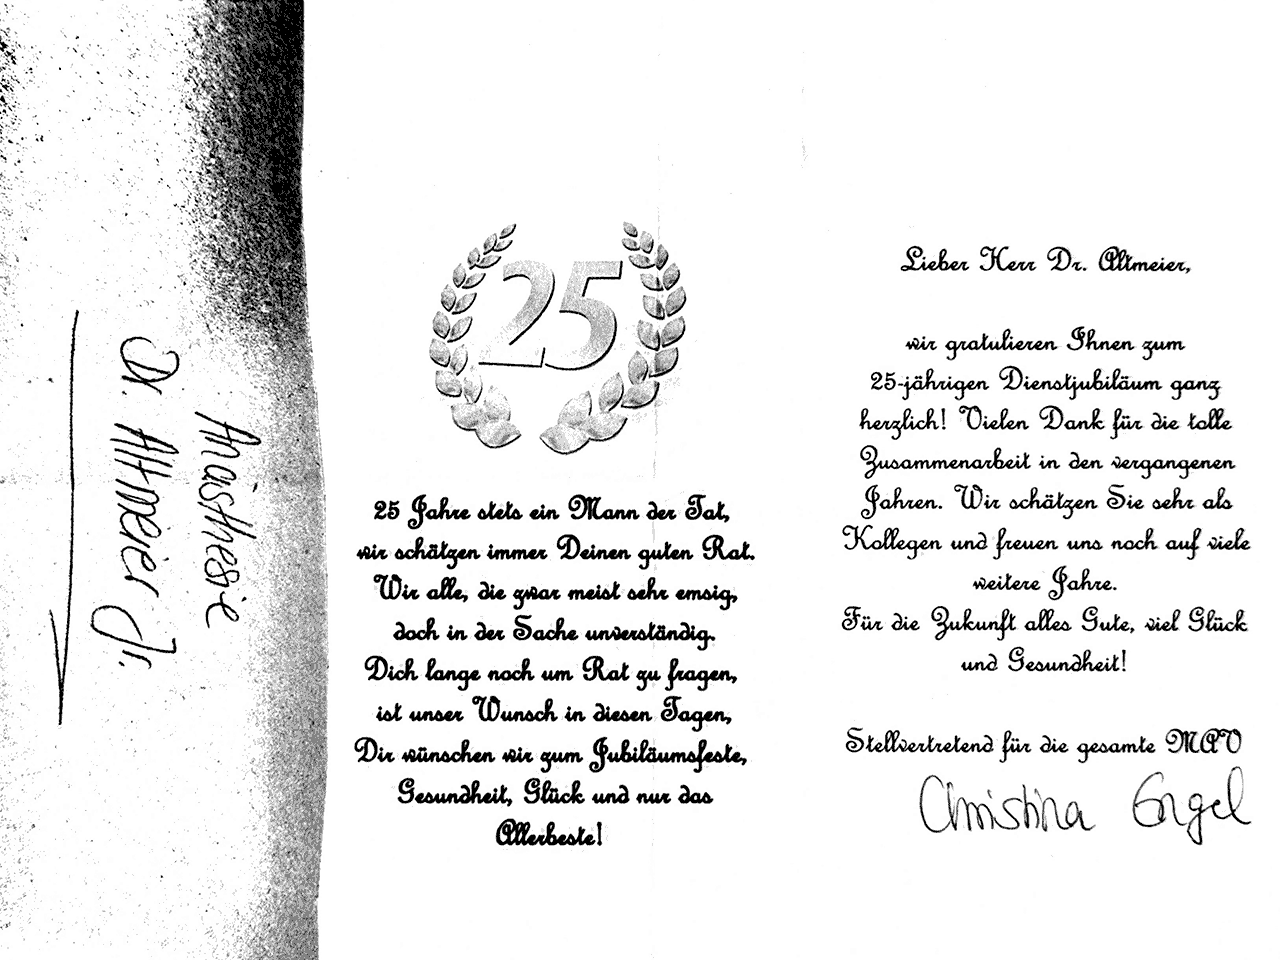 Anästhesie
Dr. Altmeier Jr.
25
25 Jahre stets ein Mann der Tat,
wir schätzen immer Deinen guten Rat.
Wir alle, die zwar meist sehr emsig,
doch in der Sache unverständig.
Dich lange noch um Rat zu fragen,
ist unser Wunsch in diesen Tagen,
Dir wünschen wir zum Jubiläumsfeste,
Gesundheit, Glück und nur das
Allerbeste!
Lieber Herr Dr. Altmeier,
wir gratulieren Ihnen zum
25-jährigen Dienstjubiläum ganz
herzlich! Vielen Dank für die tolle
Zusammenarbeit in den vergangenen
Jahren. Wir schätzen Sie sehr als
Kollegen und freuen uns noch auf viele
weitere Jahre.
Für die Zukunft alles Gute, viel Glück
und Gesundheit!
Stellvertretend für die gesamte MAV
Christina Engel